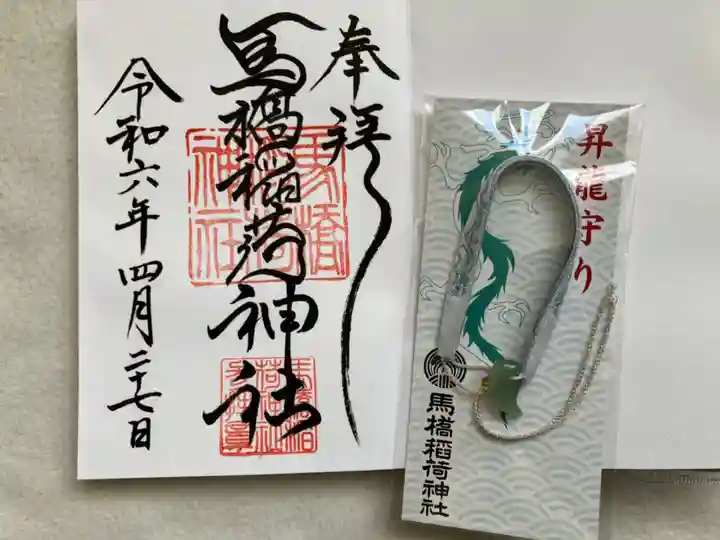 奉拝
馬橋稲荷神社
令和六年四月二十七日
馬橋
稲荷
神社
昇龍守り
馬橋稲荷神社